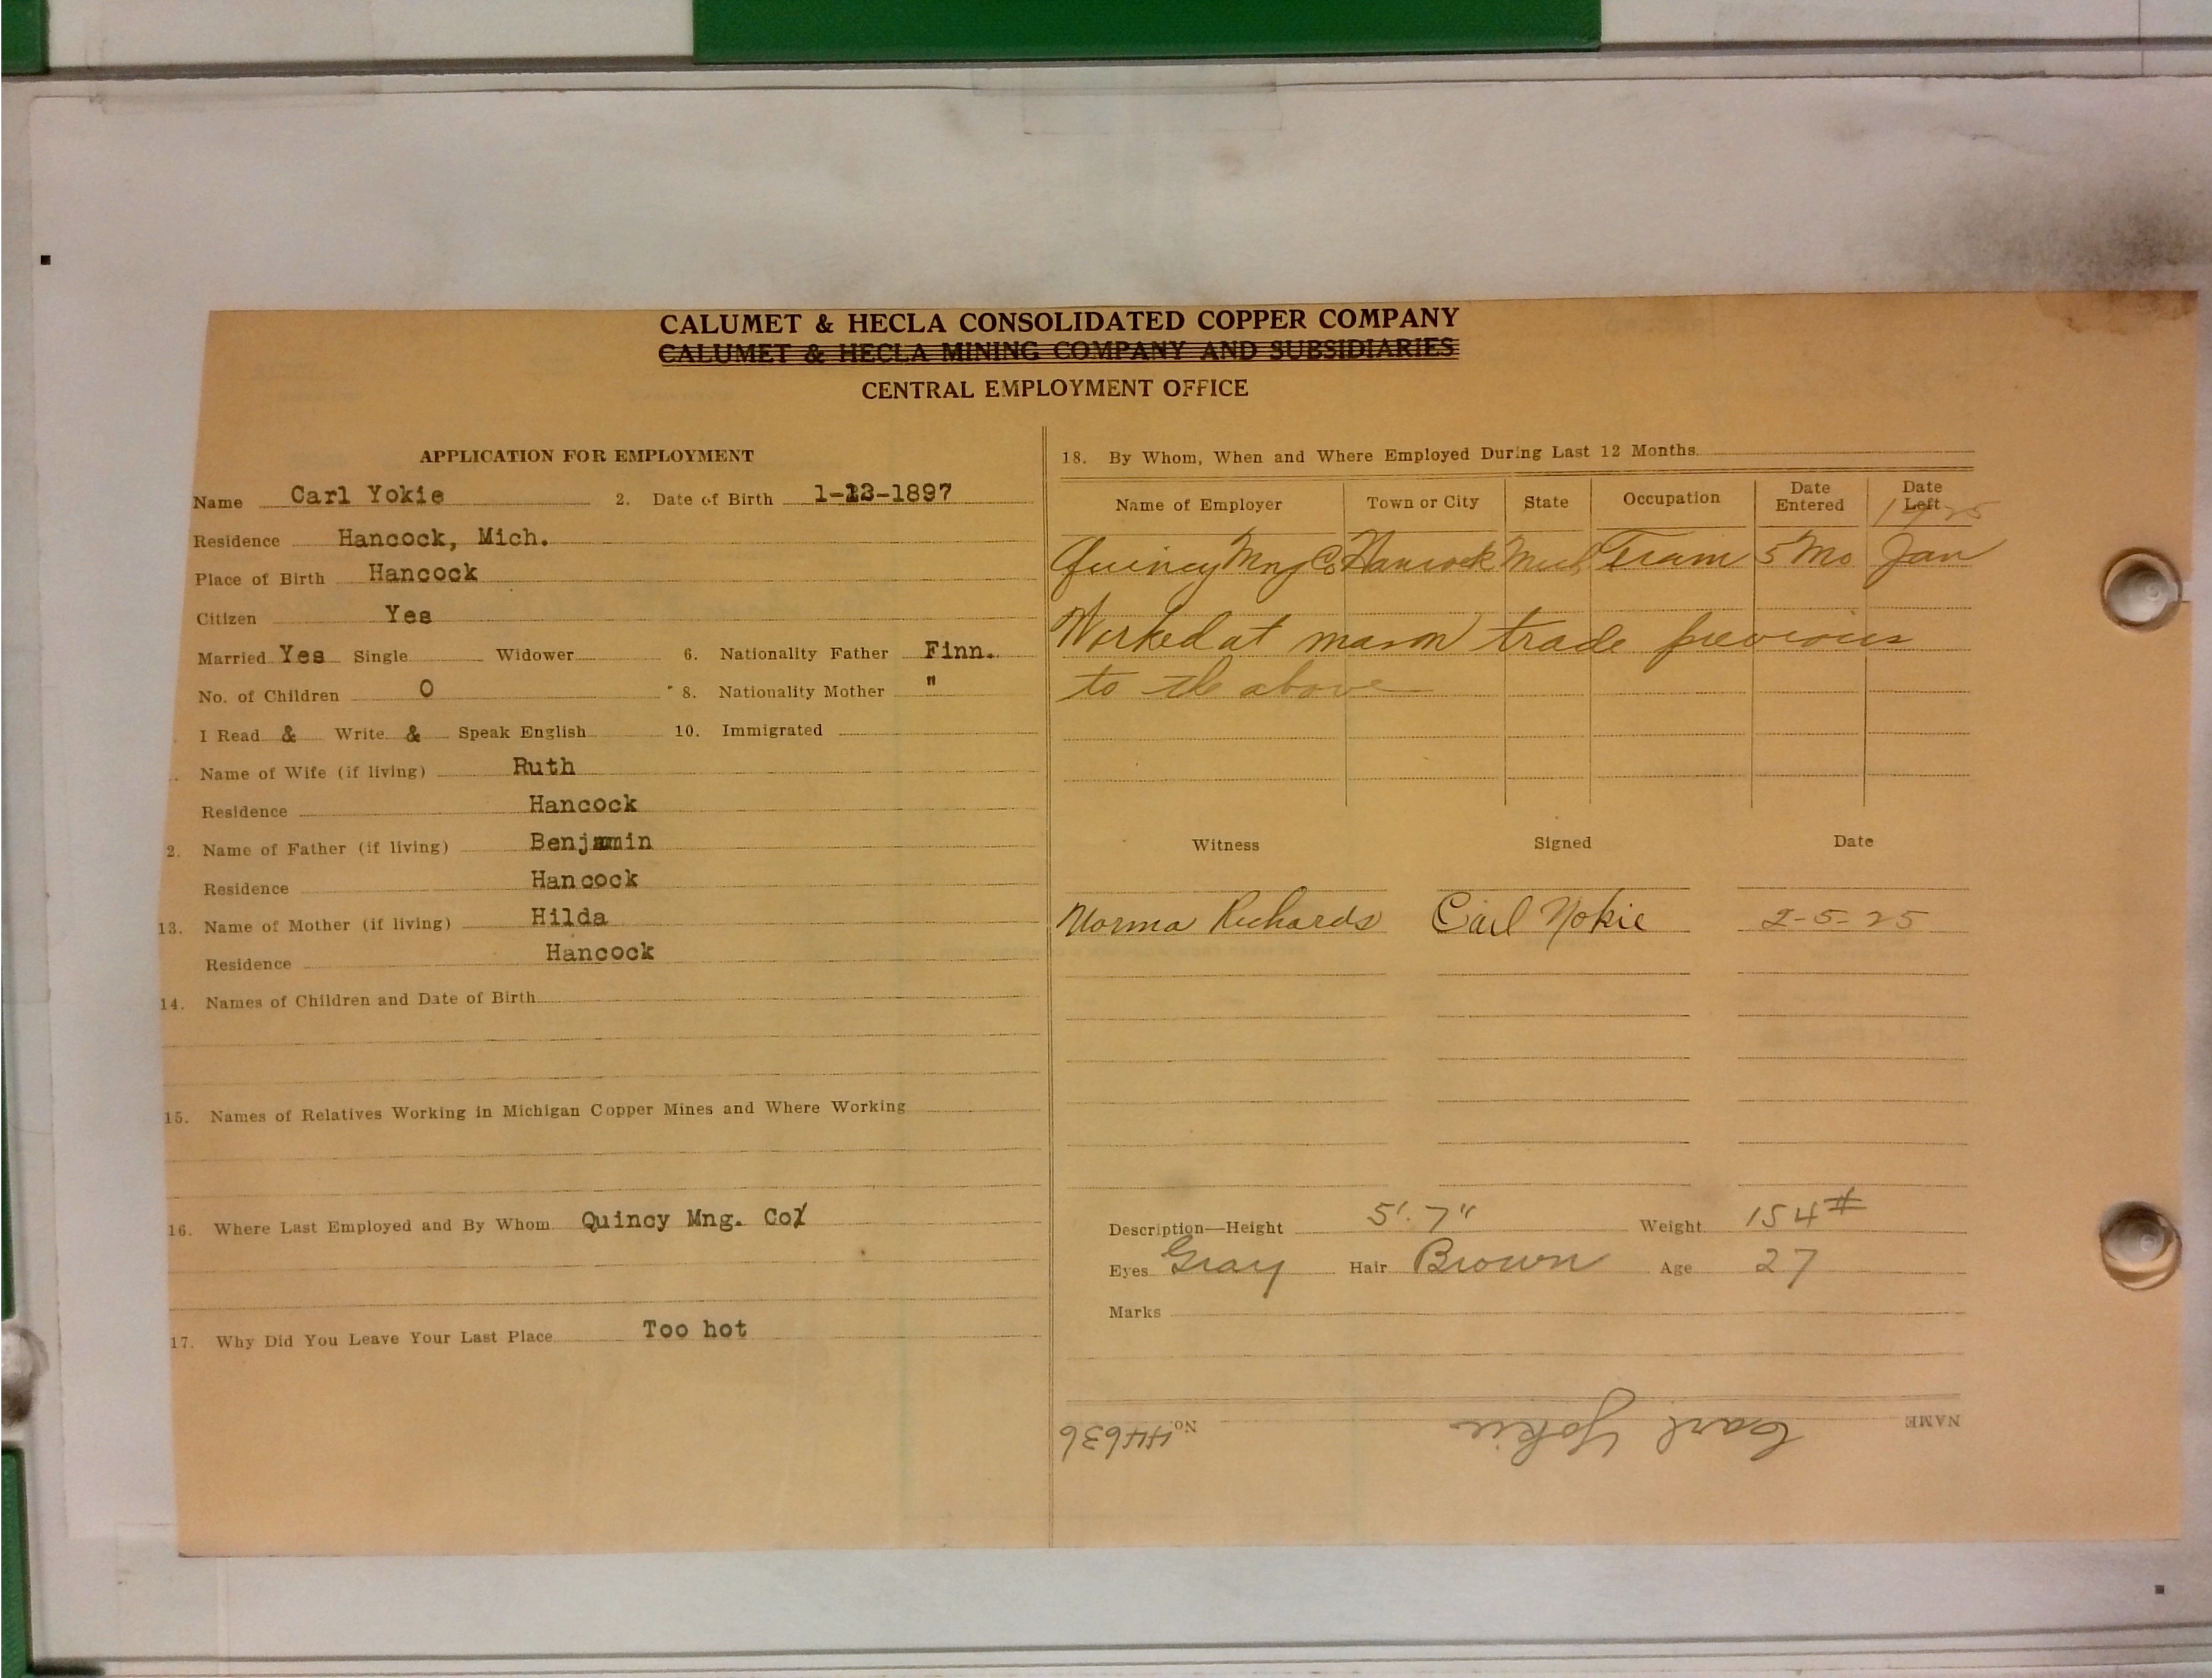 CALUMET & HECLA CONSOLIDATED COPPER COMPANY
CALUMET & HECLA MINING COMPANY AND SUBSIDIARIES
CENTRAL EMPLOYMENT OFFICE
APPLICATION FOR EMPLOYMENT
Name Carl Yokie 2. Date of Birth 1-23-1897
Residence Hancock, Mich.
Place of Birth Hancock
Citizen Yes
Married Yes Single Widower 6. Nationality Father Finn.
No. of Children 0 8. Nationality Mother "
I Read & Write & Speak English 10. Immigrated
Name of Wife (if living) Ruth
Residence Hancock
2. Name of Father (if living) Benjamin
Residence Hancock
13. Name of Mother (if living) Hilda
Residence Hancock
14. Names of Children and Date of Birth
15. Names of Relatives Working in Michigan Copper Mines and Where Working
16. Where Last Employed and By Whom Quincy Mng. Co.
17. Why Did You Leave Your Last Place Too hot
18. By Whom, When and Where Employed During Last 12 Months
Name of Employer Town or City State Occupation Date Entered Date Left
1925
Quincy Mng Co Hancock Mich Tram 5 Mo Jan
Worked at mason trade previous
to the above
Witness Signed Date
Norma Richards Carl Yokie 2-5-25
Description—Height 5'. 7" Weight 154#
Eyes Gray Hair Brown Age 27
Marks
NAME Carl Yokie No. 44636